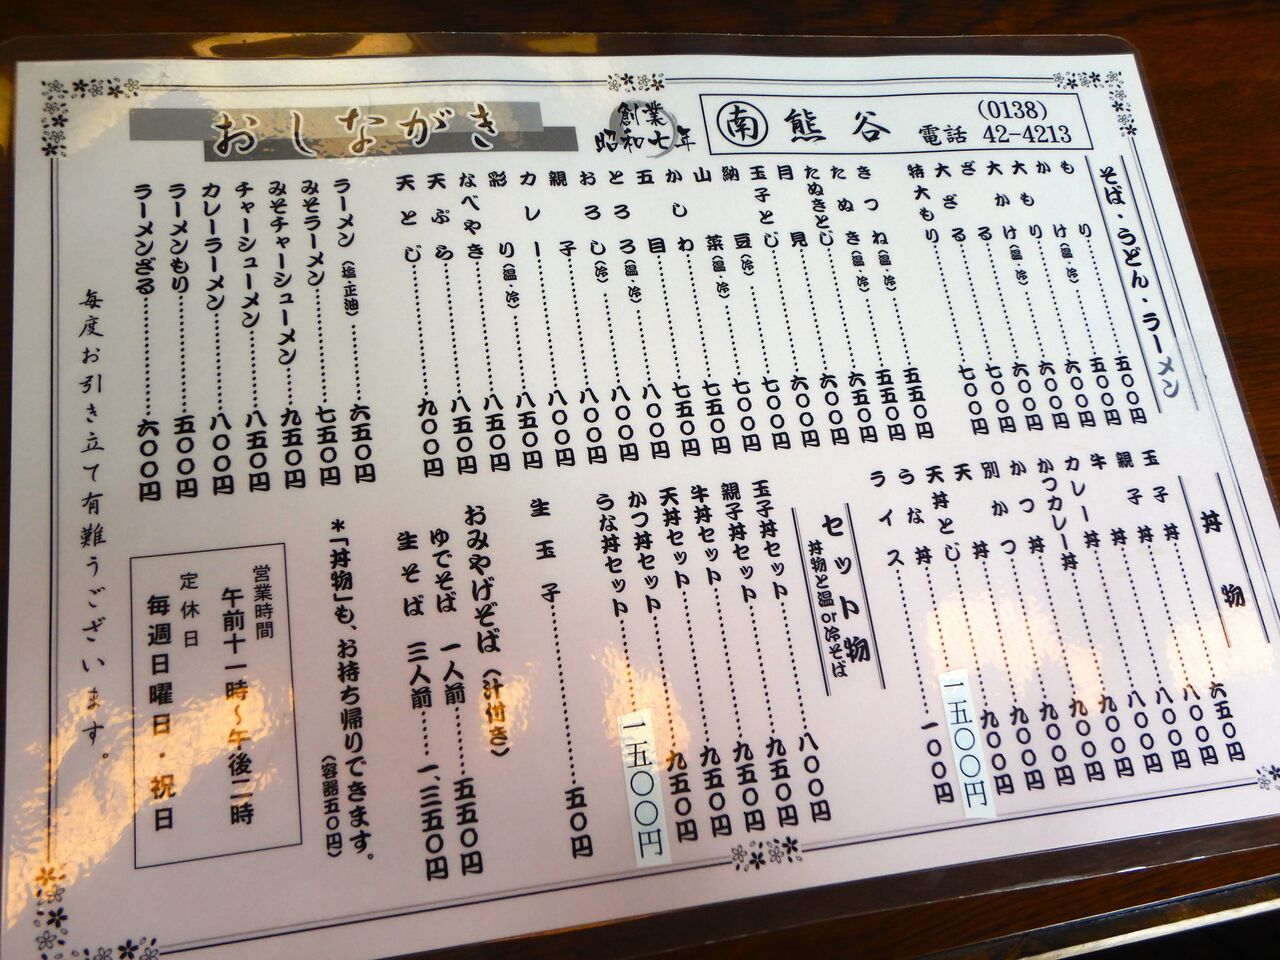 おしながき
創業
昭和七年
南 熊谷 電話 (0138) 42-4213
そば・うどん・ラーメン
もり……五〇〇円
かけ(温・冷)……五〇〇円
大もり……六〇〇円
大かけ(温・冷)……六〇〇円
ざる……六〇〇円
大ざる……七〇〇円
特大もり……七〇〇円
きつね(温・冷)……五五〇円
たぬき(温・冷)……五五〇円
たぬきとじ……六五〇円
月見……六〇〇円
玉子とじ……六〇〇円
納豆(冷)……七〇〇円
山菜(温・冷)……七〇〇円
かしわ……七五〇円
五目……七五〇円
とろろ(温・冷)……八〇〇円
おろし(冷)……八〇〇円
親子……八〇〇円
カレー……八〇〇円
彩り(温・冷)……八五〇円
なべやき……八五〇円
天ぷら……八五〇円
天とじ……九〇〇円
ラーメン(塩・正油)……六五〇円
みそラーメン……七五〇円
みそチャーシューメン……九五〇円
チャーシューメン……八五〇円
カレーラーメン……八〇〇円
ラーメンもり……五〇〇円
ラーメンざる……六〇〇円
丼物
玉子丼……六五〇円
親子丼……八〇〇円
牛丼……八〇〇円
カレー丼……八〇〇円
かつカレー丼……九〇〇円
かつ丼……九〇〇円
別かつ……九〇〇円
天丼……九〇〇円
天丼とじ……九〇〇円
うな丼……一五〇〇円
ライス……一〇〇円
セット物
丼物と温or冷そば
玉子丼セット……八〇〇円
親子丼セット……九五〇円
牛丼セット……九五〇円
天丼セット……九五〇円
かつ丼セット……九五〇円
うな丼セット……一五〇〇円
生玉子……五〇円
おみやげそば(汁付き)
ゆでそば 一人前……五五〇円
生そば 三人前……一、三五〇円
*「丼物」も、お持ち帰りできます。
(容器五〇円)
営業時間
午前十一時〜午後二時
定休日
毎週日曜日・祝日
毎度お引き立て有難うございます。